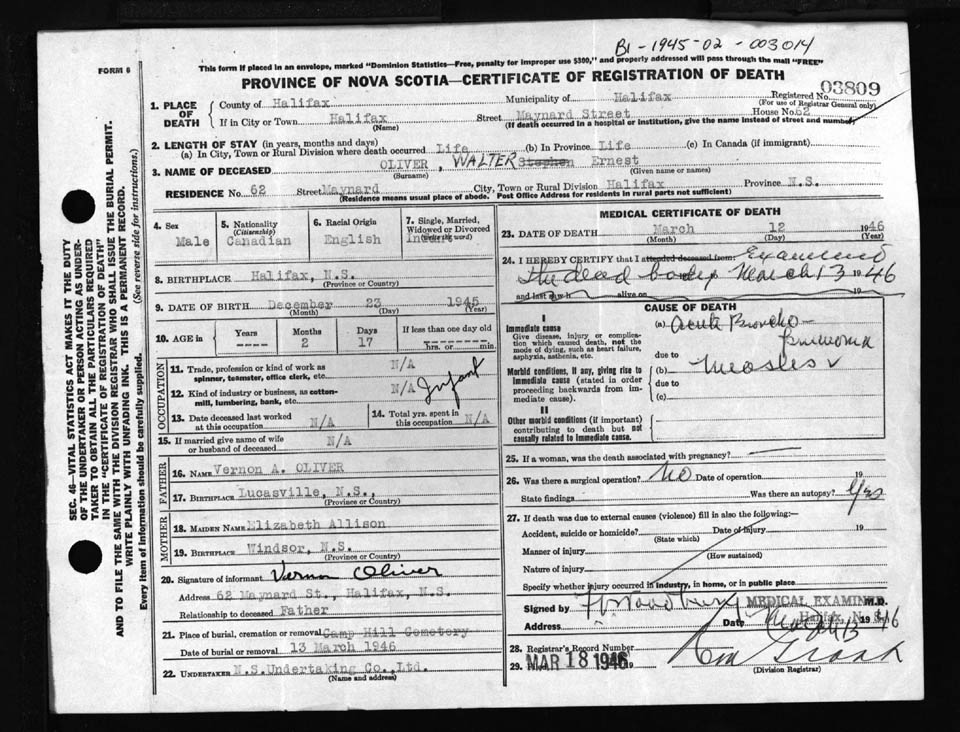 B1-1945-02-003014
FORM 6
This form if placed in an envelope, marked "Dominion Statistics—Free, penalty for improper use $300," and properly addressed will pass through the mail "FREE"
PROVINCE OF NOVA SCOTIA—CERTIFICATE OF REGISTRATION OF DEATH
Registered No. 03809
(For use of Registrar General only)
1. PLACE OF DEATH
County of Halifax Municipality of Halifax
If in City or Town Halifax Street Maynard Street House No. 62
(Name) (If death occurred in a hospital or institution, give the name instead of street and number)
2. LENGTH OF STAY (in years, months and days)
(a) In City, Town or Rural Division where death occurred Life (b) In Province Life (c) In Canada (if immigrant)
3. NAME OF DECEASED OLIVER, WALTER Stephen Ernest
(Surname) (Given name or names)
RESIDENCE No. 62 Street Maynard City, Town or Rural Division Halifax Province N.S.
(Residence means usual place of abode. Post Office Address for residents in rural parts not sufficient)
4. Sex
Male
5. Nationality
(Citizenship)
Canadian
6. Racial Origin
English
7. Single, Married, Widowed or Divorced
Infant
8. BIRTHPLACE Halifax, N.S.
(Province or Country)
9. DATE OF BIRTH December 23 1945
(Month) (Day) (Year)
10. AGE in
Years Months Days If less than one day old
2 17 hrs. or min.
OCCUPATION
11. Trade, profession or kind of work as spinner, teamster, office clerk, etc. N/A
12. Kind of industry or business, as cotton-mill, lumbering, bank, etc. N/A Infant
13. Date deceased last worked at this occupation N/A
14. Total yrs. spent in this occupation N/A
15. If married give name of wife or husband of deceased N/A
FATHER
16. NAME Vernon A. OLIVER
17. BIRTHPLACE Lucasville, N.S.,
(Province or Country)
MOTHER
18. MAIDEN NAME Elizabeth Allison
19. BIRTHPLACE Windsor, N.S.
(Province or Country)
20. Signature of informant Vernon Oliver
Address 62 Maynard St., Halifax, N.S.
Relationship to deceased Father
21. Place of burial, cremation or removal Camp Hill Cemetery
Date of burial or removal 13 March 1946
22. UNDERTAKER N.S.Undertaking Co., Ltd.
(Name and address)
MEDICAL CERTIFICATE OF DEATH
23. DATE OF DEATH March 12 1946
(Month) (Day) (Year)
24. I HEREBY CERTIFY that I attended deceased from Examined
the dead body March 13 1946
and last saw h alive on 19
CAUSE OF DEATH
I
Immediate cause
Give disease, injury or complication which caused death, not the mode of dying, such as heart failure, asphyxia, asthenia, etc.
(a) Acute Broncho-
pneumonia
due to
Morbid conditions, if any, giving rise to immediate cause (stated in order proceeding backwards from immediate cause).
(b) Measles
due to
(c)
II
Other morbid conditions (if important) contributing to death but not causally related to immediate cause.
25. If a woman, was the death associated with pregnancy?
26. Was there a surgical operation? No Date of operation 19
State findings Was there an autopsy? Yes
27. If death was due to external causes (violence) fill in also the following:—
Accident, suicide or homicide? Date of injury 19
(State which)
Manner of injury
(How sustained)
Nature of injury
Specify whether injury occurred in industry, in home, or in public place
Signed by M.D.
MEDICAL EXAMINER
Address Date 1946
28. Registrar's Record Number
29. MAR 18 1946
(Division Registrar)
SEC. 46—VITAL STATISTICS ACT MAKES IT THE DUTY
OF THE UNDERTAKER OR PERSON ACTING AS UNDER-
TAKER TO OBTAIN ALL THE PARTICULARS REQUIRED
IN THE "CERTIFICATE OF REGISTRATION OF DEATH"
AND TO FILE THE SAME WITH THE DIVISION REGISTRAR WHO SHALL ISSUE THE BURIAL PERMIT.
WRITE PLAINLY WITH UNFADING INK. THIS IS A PERMANENT RECORD.
Every item of information should be carefully supplied. (See reverse side for instructions.)